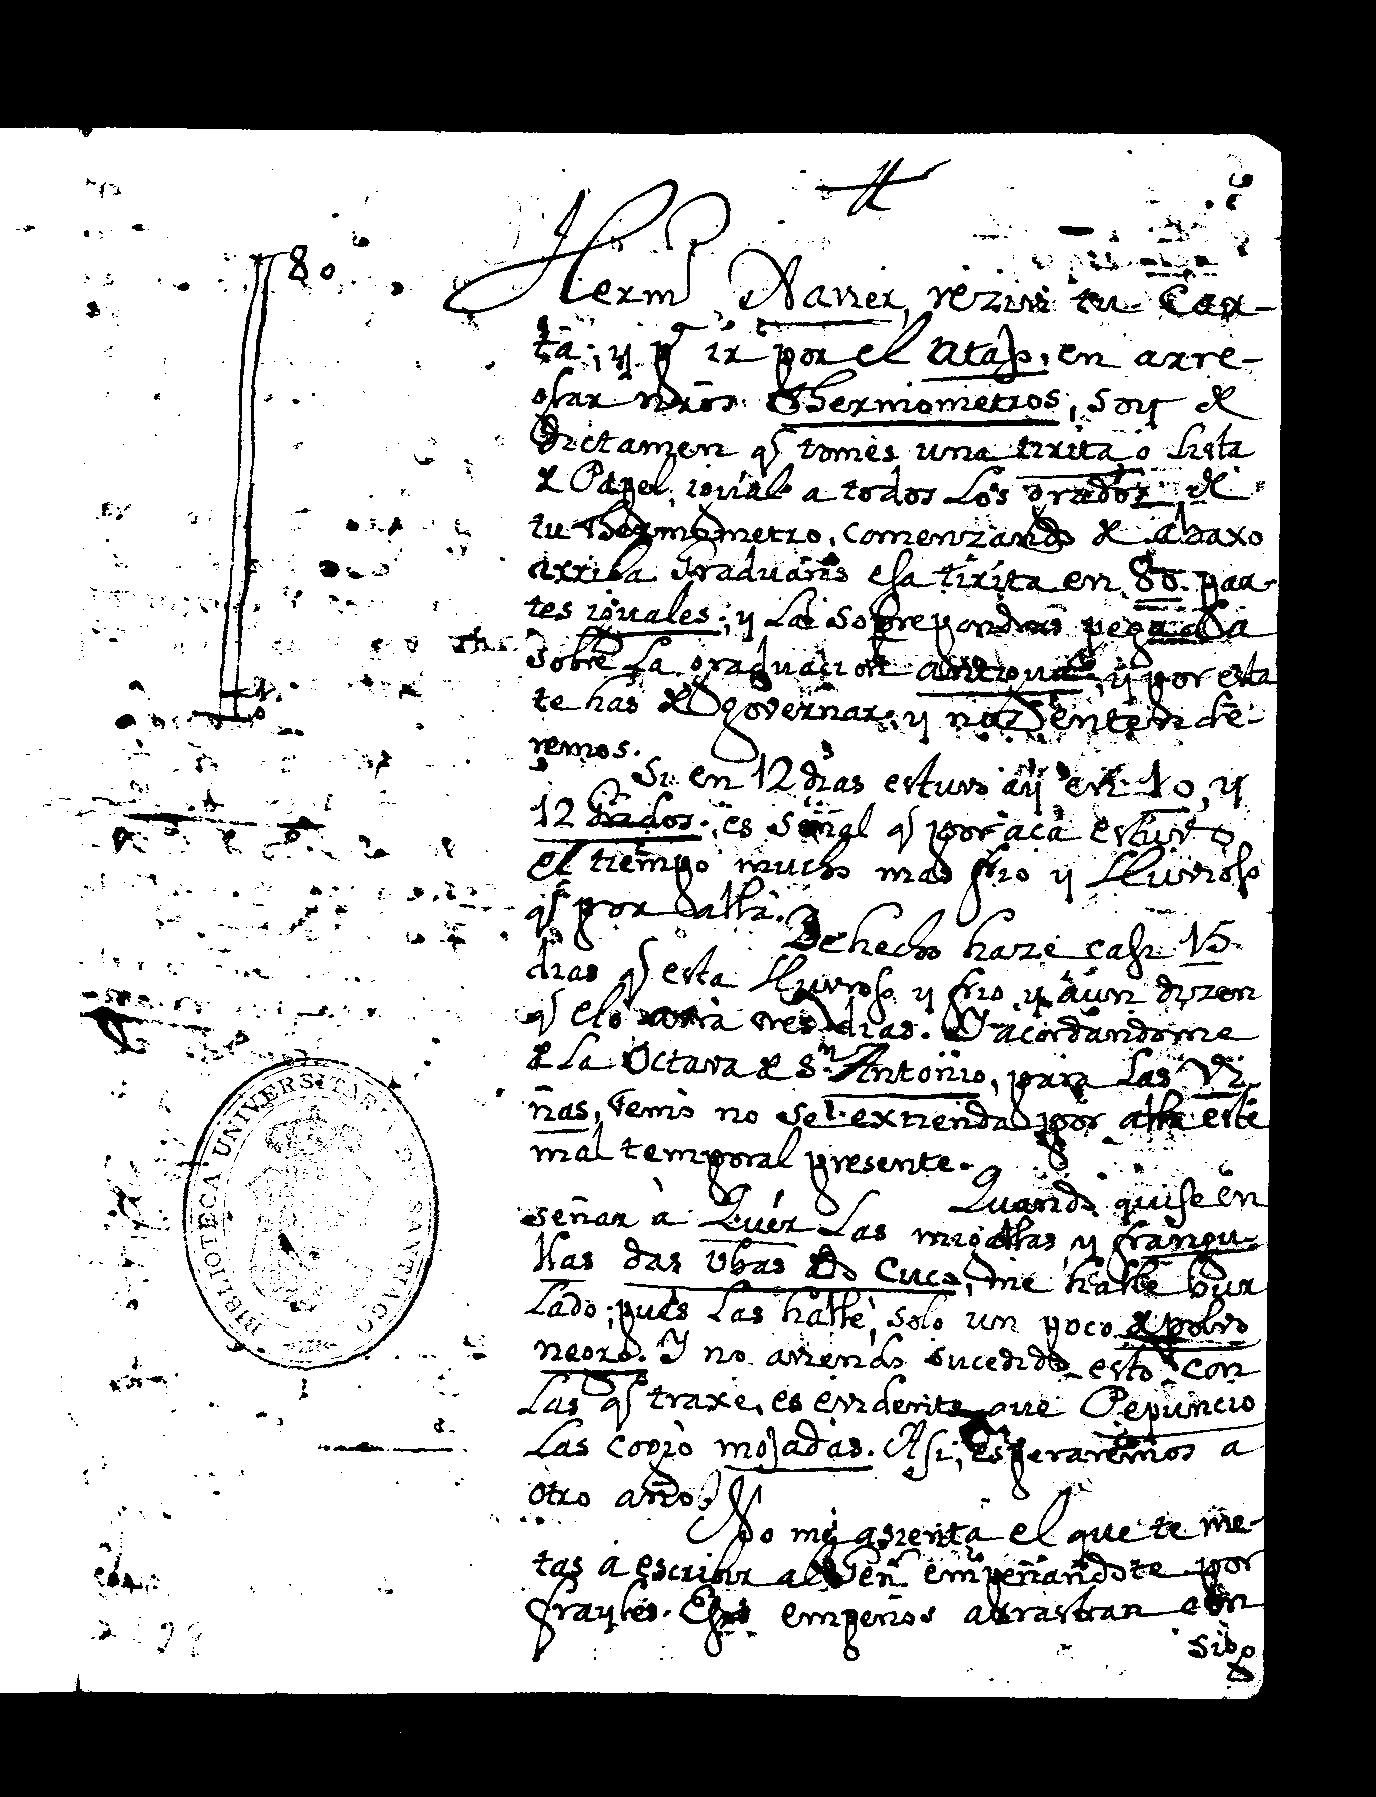 80
Herm.º Xavier, rezivi tu Car-
ta; y pª ir por el atajo, en arre-
glar nrōs Thermometros, soy de
dictamen q̃ tomes una tirita o lista
de Papel, igual a todos los grados, de
tu Thermometro, comenzando de abaxo
arriba. Graduarás esa tirita en 80 par-
tes iguales; y la sobrepondrás pegada
sobre la graduacion antigua; y por esta
te has de governar, y nos entende-
remos.
1.
0
Si en 12 dias estuvo ay en 10, y
12 Grados; es señal q̃ por acá estuvo
el tiempo mucho mas frio y lluvioso
q̃ por allá.
De hecho haze casi 15
dias q̃ esta lluvioso y frio y aun dizen
q̃ eló avrá tres dias. Y acordandome
de la Octava de Sn. Antonio, para las Vi-
ñas, temo no se extienda por allá este
mal temporal presente.
Quando quise en
señar à Quer las migallas y frangu-
llas das ubas do Cuco, me hallé bur
lado; pues las hallé, solo un poco de polvo
negro. Y no aviendo sucedido esto con
las q̃ traxe, es evidente que Pepuncio
las cogió mojadas. Asi, esperaremos a
otro año.
No me asienta el que te me-
tas a escribir al Señr empeñandote por
frayles. Esos empeños arrastran con
sigo
BIBLIOTECA UNIVERSITARIA DE SANTIAGO